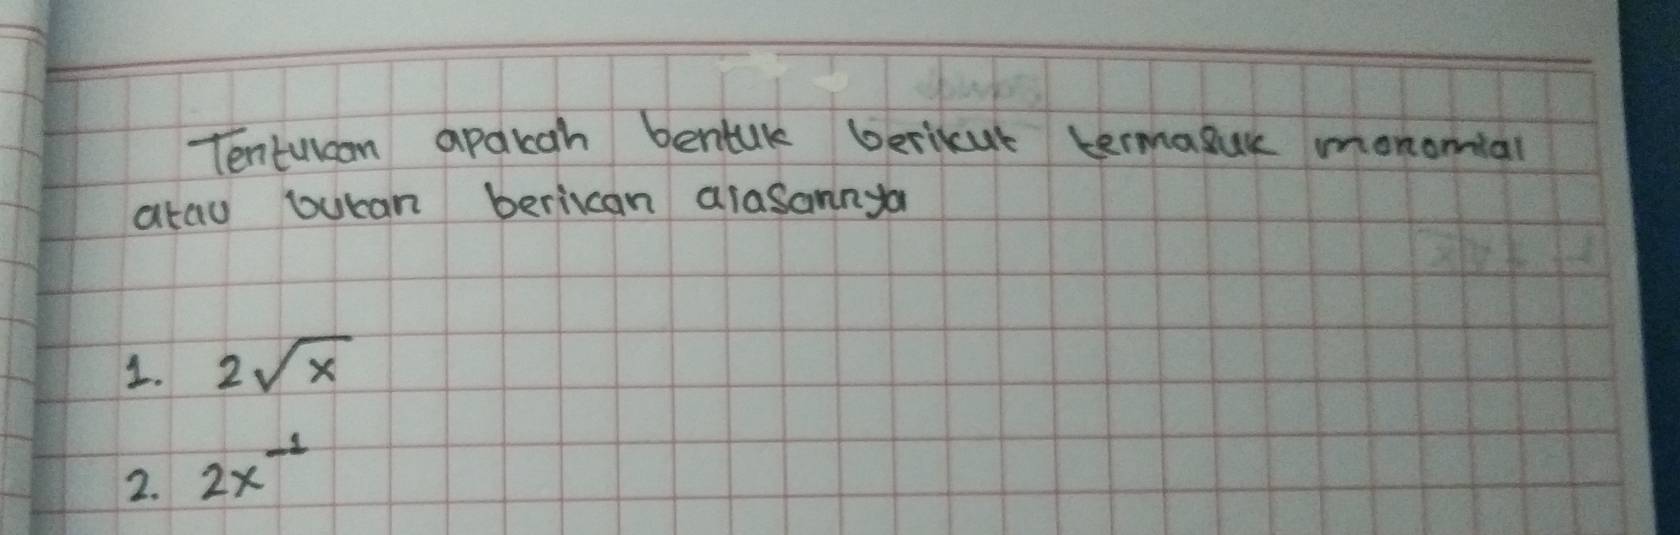 Tentukan apakah bentuk berikut termasuk monomial
atau bukan berikan alasannya
1. 2√x
2. 2x⁻¹